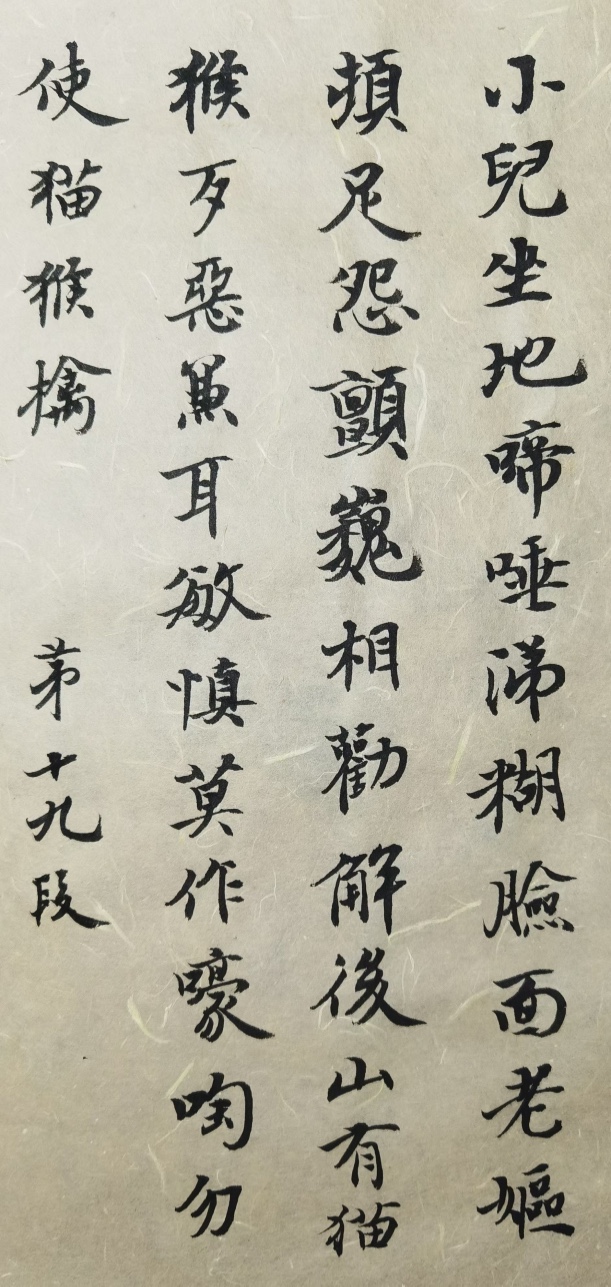 小兒坐地啼唾涕糊臉面老嫗
頓足怨顫巍相勸解後山有猫
猴歹惡兼耳敏慎莫作嚎啕勿
使猫猴擒 第十九段